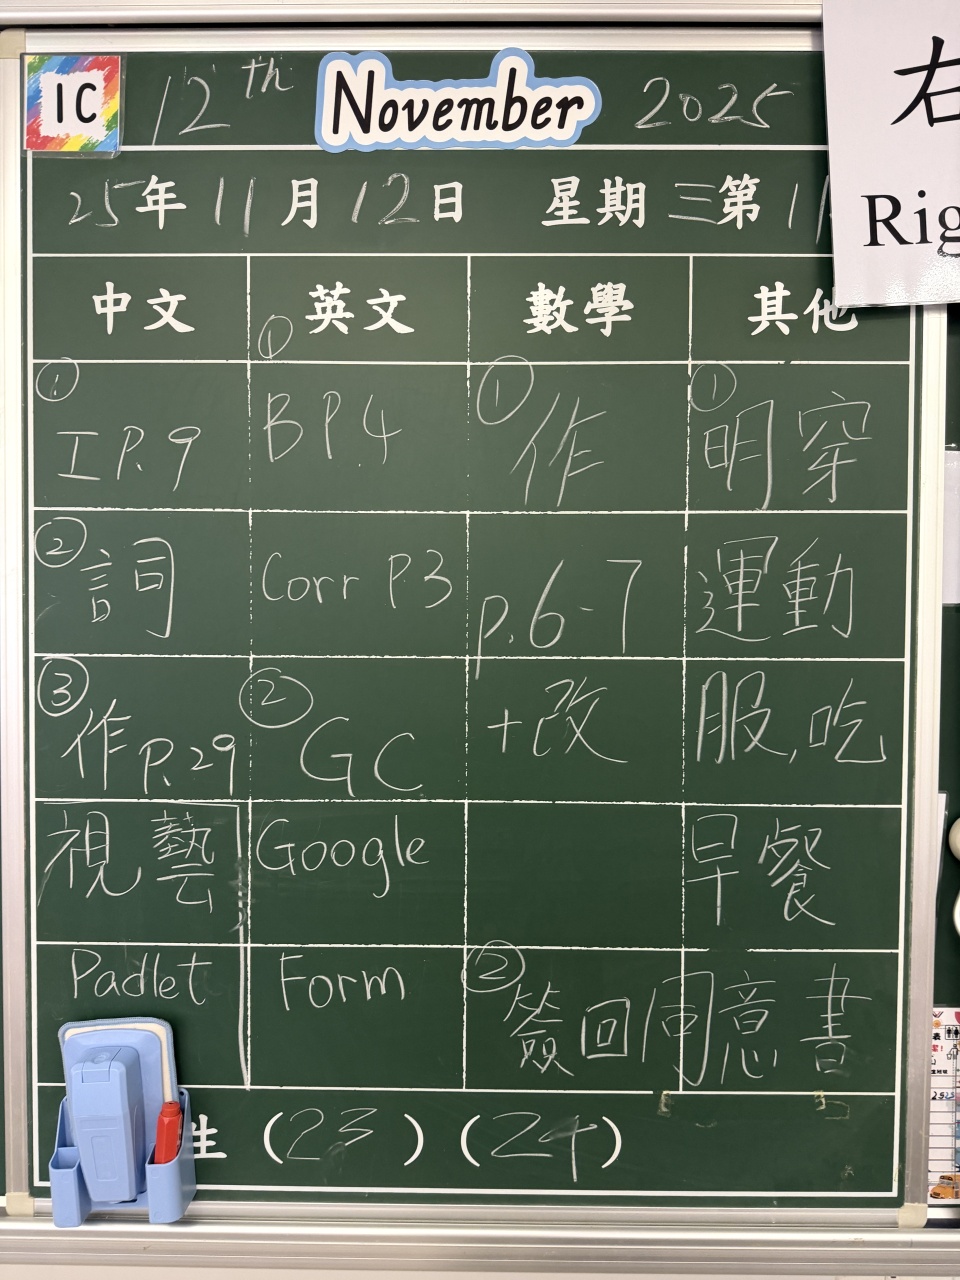 1C 12th November 2025
右
Rig
25年11月12日 星期三第11
中文 英文 數學 其他
① ① ① ①
工P.9 BP.4 作 明穿
② 詞 Corr P.3 p.6-7 運動
③ 作P.29 ② GC +改 服,吃
視藝 Google 早餐
Padlet Form ② 簽回同意書
生 (23) (24)